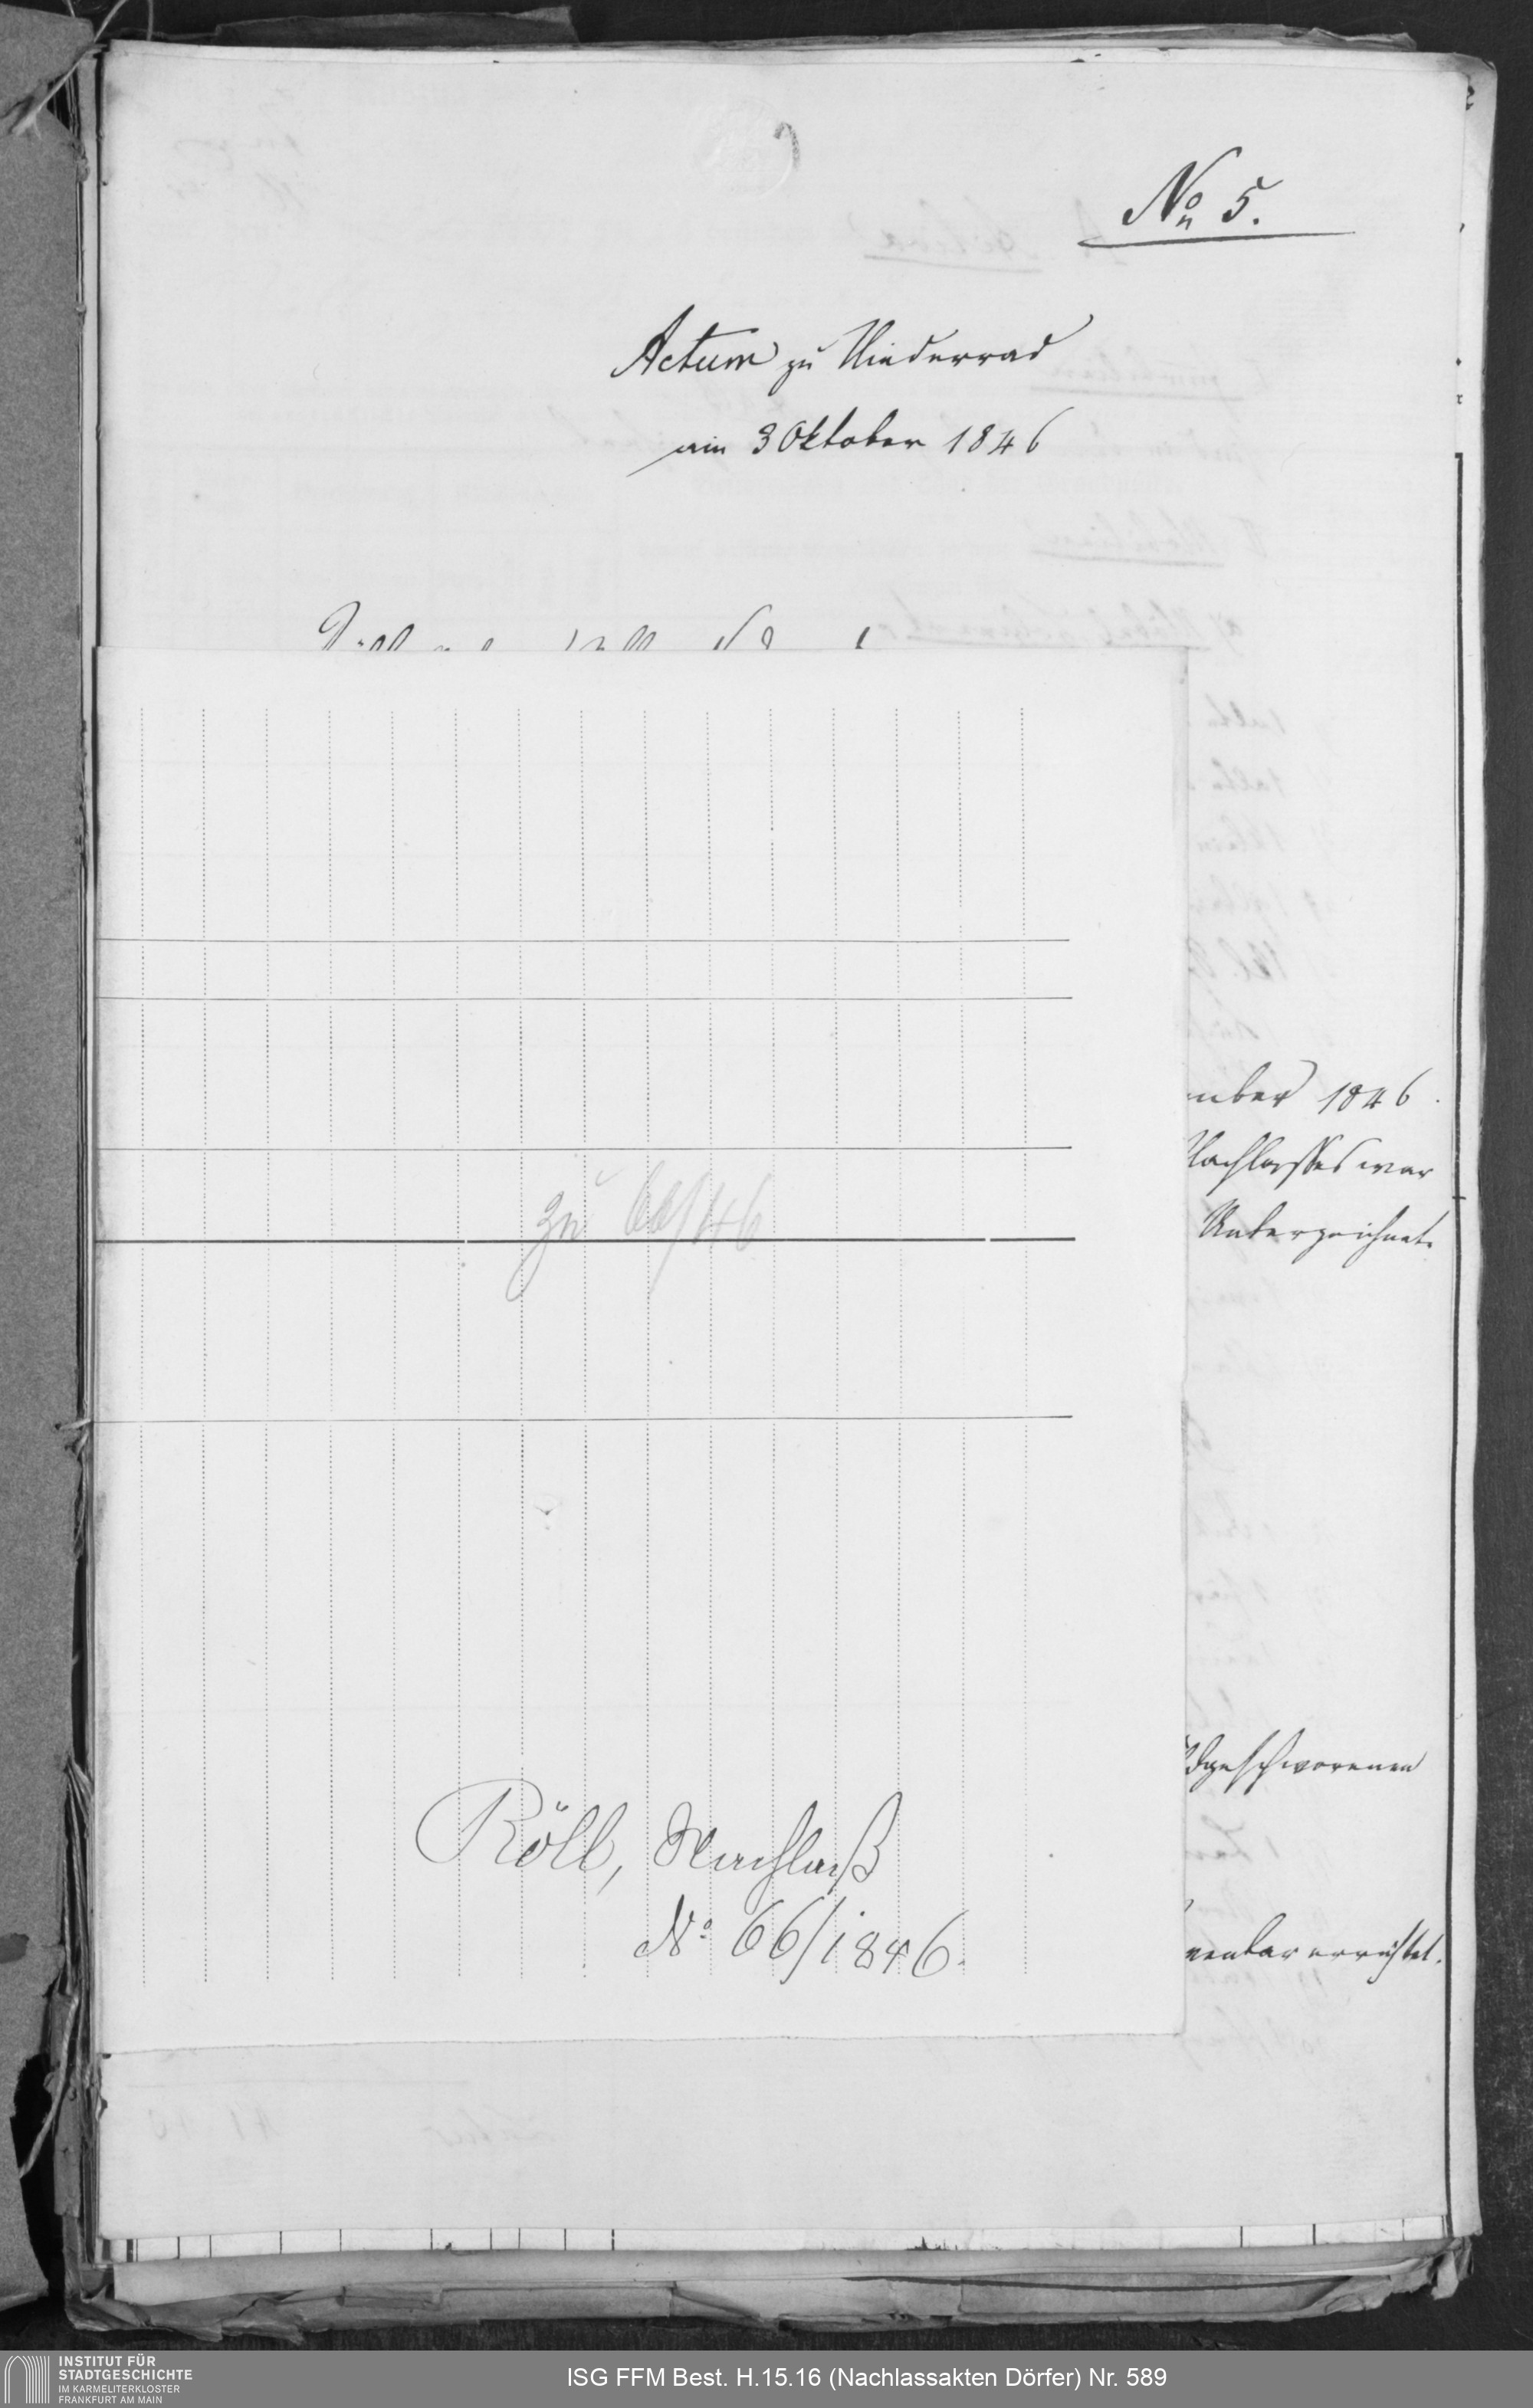 No 5.
Actum zu Niederrad
am 3 Oktober 1846
mber 1846.
Nachlasses war
Unterzeichnete
zu 66/46
dgeschworenen
Röll, Nachlaß
No 66/1846.
ventar errichtet.
INSTITUT FÜR
STADTGESCHICHTE
IM KARMELITERKLOSTER
FRANKFURT AM MAIN
ISG FFM Best. H.15.16 (Nachlassakten Dörfer) Nr. 589